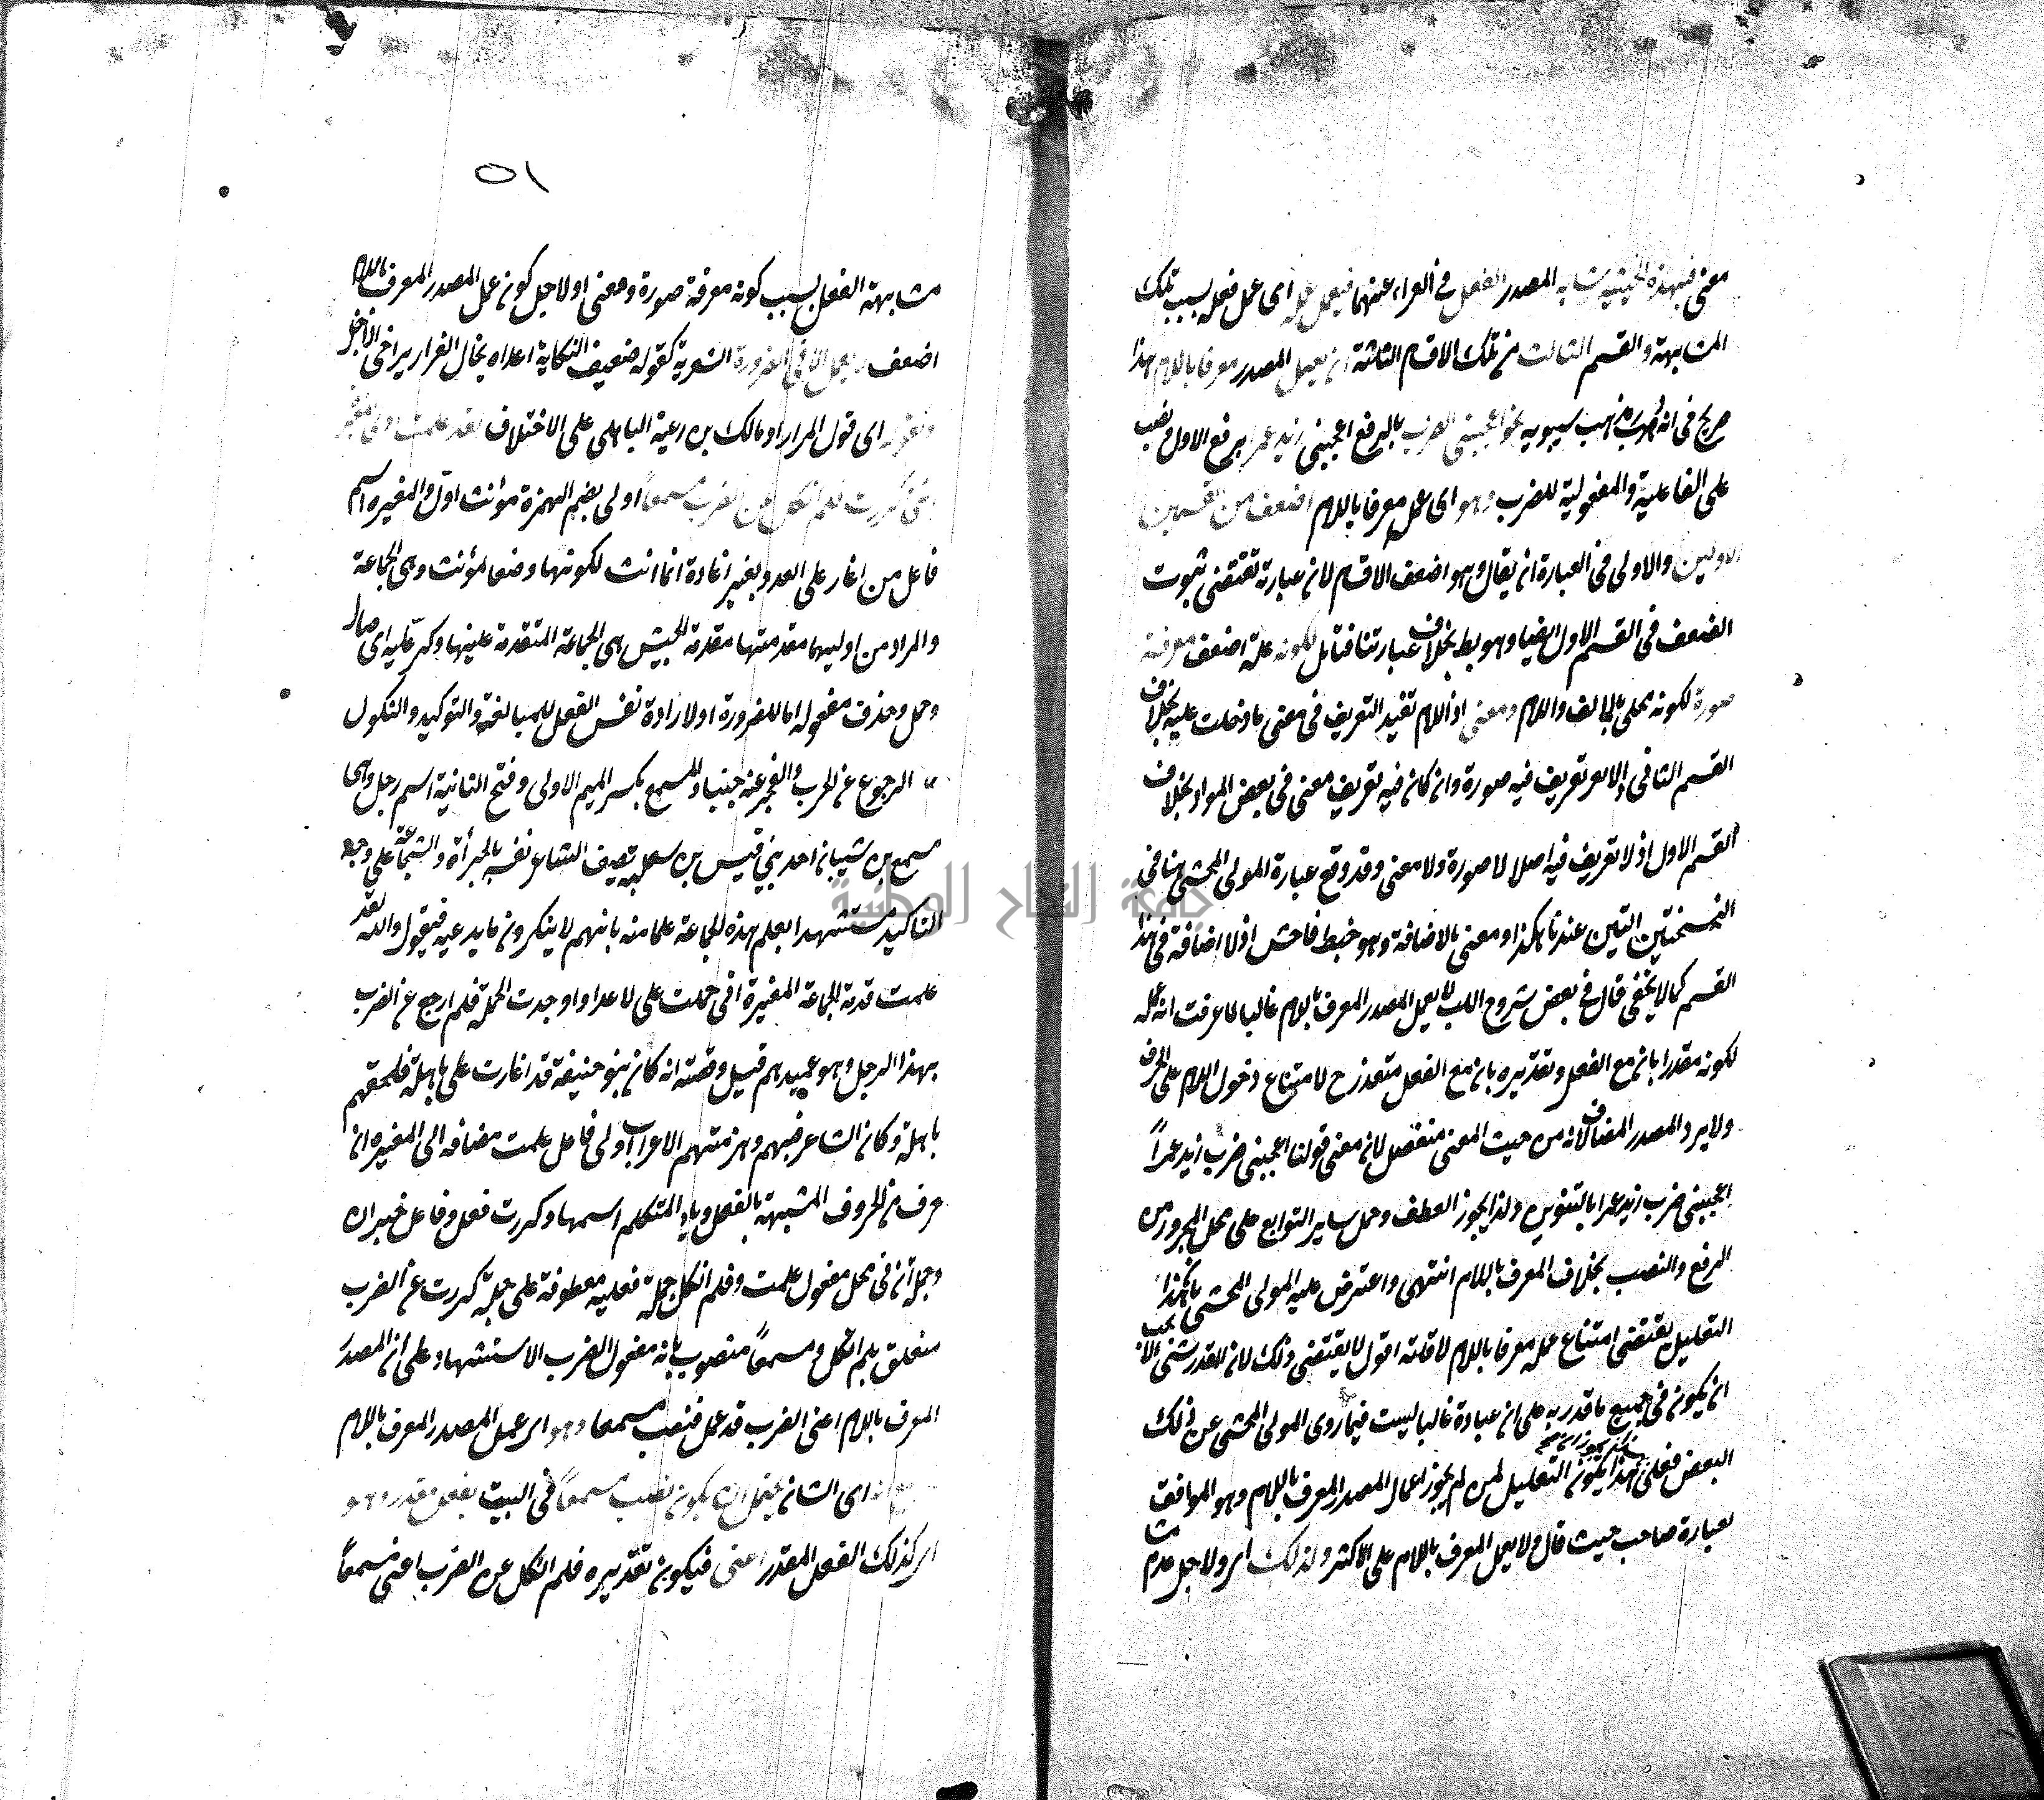 معنى فبهذه الحيثية يشابه المصدر الفعل في العراء عنهما فيعمل عمله اى عمل فعله بسبب تلك
المشابهة والقسم الثالث من تلك الاقسام الثلثة ان يعمل المصدر معرفا باللام هذا
صريح في انه مذهب سيبويه نحو اعجبنى الضرب بالرفع اعجبنى زيد عمرا برفع الاول ونصب
على الفاعلية والمفعولية للضرب وهو اى عمله معرفا باللام اضعف من القسمين
الاولين والاولى في العبارة ان يقال وهو اضعف الاقسام لان عبارته تقتضى ثبوت
الضعف في القسم الاول ايضا وهو بط بخلاف عبارتنا فتامل لكونه علة اضعف معرفة
صورة لكونه محلى بالالف واللام ومعنى اذ اللام تفيد التعريف في معنى ما دخلت عليه بخلاف
القسم الثانى اذ لا تعريف فيه صورة وان كان فيه تعريف معنى في بعض المواد بخلاف
القسم الاول اذ لا تعريف فيه اصلا لا صورة ولا معنى وقد وقع عبارة المولى المحشى هنا في
النسختين التين عندنا هكذا ومعنى بالاضافة وهو خبط فاحش اذ لا اضافة في هذا
القسم كما لا يخفى قال في بعض شروح اللب لا يعمل المصدر المعرف باللام غالبا لما عرفت انه عمله
لكونه مقدرا بان مع الفعل وتقديره بان مع الفعل متعذر ح لامتناع دخول اللام على الحرف
ولا يرد المصدر المضاف لانه من حيث المعنى منفصل لان معنى قولنا اعجبنى ضرب زيد عمراً
اعجبنى ضرب زيد عمرا بالتنوين ولذا يجوز العطف وحمل ساير التوابع على محل المجرور من
الرفع والنصب بخلاف المعرف باللام انتهى واعترض عليه المولى المحشى بان هذا
التعليل يقتضى امتناع عمله معرفا باللام لا قلته اقول لا يقتضى ذلك لان المقدر بشئ لا يجب
ان يكون في جميع ما قدر به على ان عبادة غالبا ليست فيما روى المولى المحشى عن ذلك
البعض فعلى هذا يكون التعليل لمن لم يجوز اعمال المصدر المعرف باللام وهو الموافق
لعبارة صاحب حيث قال ولا يعمل المعرف باللام على الاكثر ولذلك اى ولاجل عدم
٥١
مشابهة الفعل بسبب كونه معرفة صورة ومعنى او لاجل كون عمل المصدر المعرف باللام
اضعف لم يعمل الا في الضرورة الشعرية كقوله ضعيف النكاية اعداه يخال الفرار يراخى الاجل
وقوله اى قول المرار او مالك بن رعية الباهلى على الاختلاف لقد علمت اولى المغيرة
اننى كررت فلم انكل عن الضرب مسمعاً اولى بضم الهمزة مونث اول والمغيرة اسم
فاعل من اغار على العدو يغير اغارة انما انث لكونها وصفا لمؤنث وهى الجماعة
والمراد من اوليها مقدمتها مقدمة الجيش هى الجماعة المتقدمة عليها وكر عليه اى صال
وحمل وحذف مفعوله اما للضرورة او لارادة نفس الفعل للمبالغة والتوكيد والنكول
الرجوع عن الحرب والفجر عنه جنبا ومسمع بكسر الميم الاولى وفتح الثانية اسم رجل وهى
مسمع بن شيبان احد بنى قيس بن ثعلبه يصف الشاعر نفسه بالجرأة والشجاعة على وجه
التاكيد مستشهدا بعلم هذه الجماعة علما منه بانهم لا ينكرون ما يدعيه فيقول والله لقد
علمت قدمة الجماعة المغيرة انى حملت على لاعدا واوجدت الحملة فلم ارجع عن الضرب
بهذا الرجل وهو عميدهم قيل وقصته انه كان بنو حنيفة قد اغارت على باهلة فلحقهم
باهلة وكان الشاعر فيهم وهزمتهم الاعراب اولى فاعل علمت مضافه الى المغيره ان
حرف من الحروف المشبهة بالفعل وياء المتكلم اسمها وكررت فعل وفاعل خبر ان
وجملة ان في محل مفعول علمت وفلم انكل جملة فعليه معطوفة على جملة كررت عن الضرب
متعلق بلم انكل ومسمعاً منصوب بانه مفعول الضرب الاستشهاد على أن المصدر
المعرف باللام اعنى الضرب قد عمل فنصب مسمعا وهو اى عمل المصدر المعرف باللام
اى الشان يحتمل ان يكون نصب مسمعاً في البيت بفعل مقدر وهو
اى كذلك الفعل المقدر اعنى فيكون تقديره فلم انكل عن الضرب اعنى مسمعاً
جامعة النجاح الوطنية